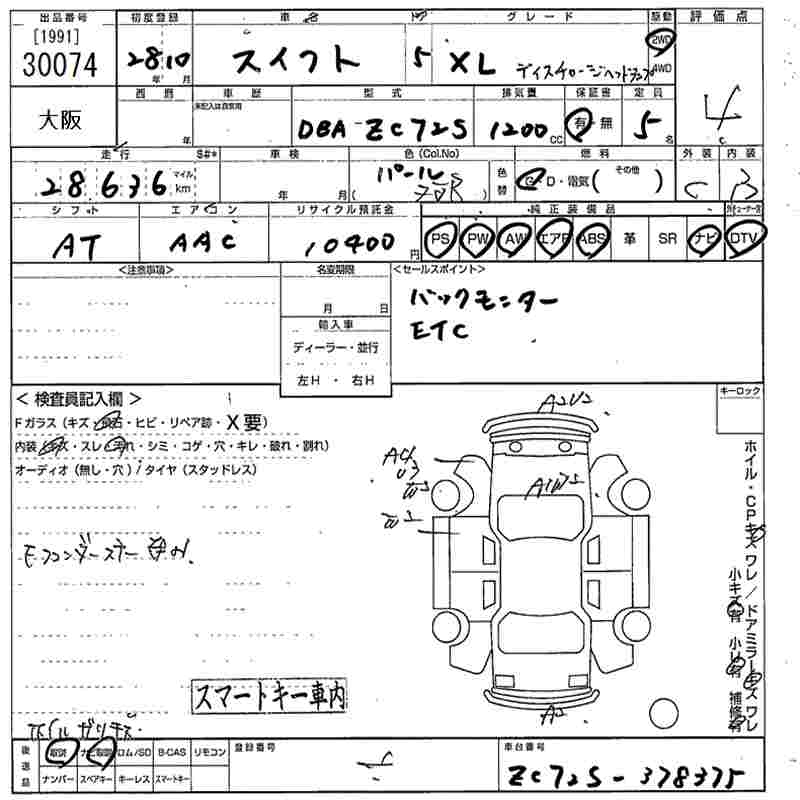 出品番号 初度登録 車名 ドア グレード 駆動 評価点
[1991]
30074
28 10
年 月
スイフト 5 XL ディスチャージヘッドランプ
2WD
4WD
4
大阪
西暦 車歴 型式 排気量 保証書 定員
未記入は自家用
年
DBA-ZC72S 1200 cc 有・無 5 名
走行 S#* 車検 色(Col.No) 色替 燃料 外装 内装
28,636 マイル km
年 月
パール
G・D・電気( その他 )
C B
シフト エアコン リサイクル預託金 純正装備品
AT AAC 10400 円
PS PW AW エアB ABS 革 SR ナビ DTV
<注意事項> 名変期限 <セールスポイント>
月 日
輸入車
ディーラー・並行
左H ・ 右H
バックモニター
ETC
<検査員記入欄>
Fガラス(キズ・飛石・ヒビ・リペア跡・X要)
内装(キズ・スレ・汚れ・シミ・コゲ・穴・キレ・破れ・割れ)
オーディオ(無し・穴)/タイヤ(スタッドレス)
キーロック
A2U2
A4
U3
A1
A2
ホイル・CPキズワレ/ドアミラーキズワレ
小キズ有 小凹有 補修有
スマートキー車内
ホイルガリキズ
後送品 取説 ナビ取説 ロム/SD B-CAS リモコン
ナンバー スペアキー キーレス スマートキー
登録番号 車台番号
ZC72S-378375